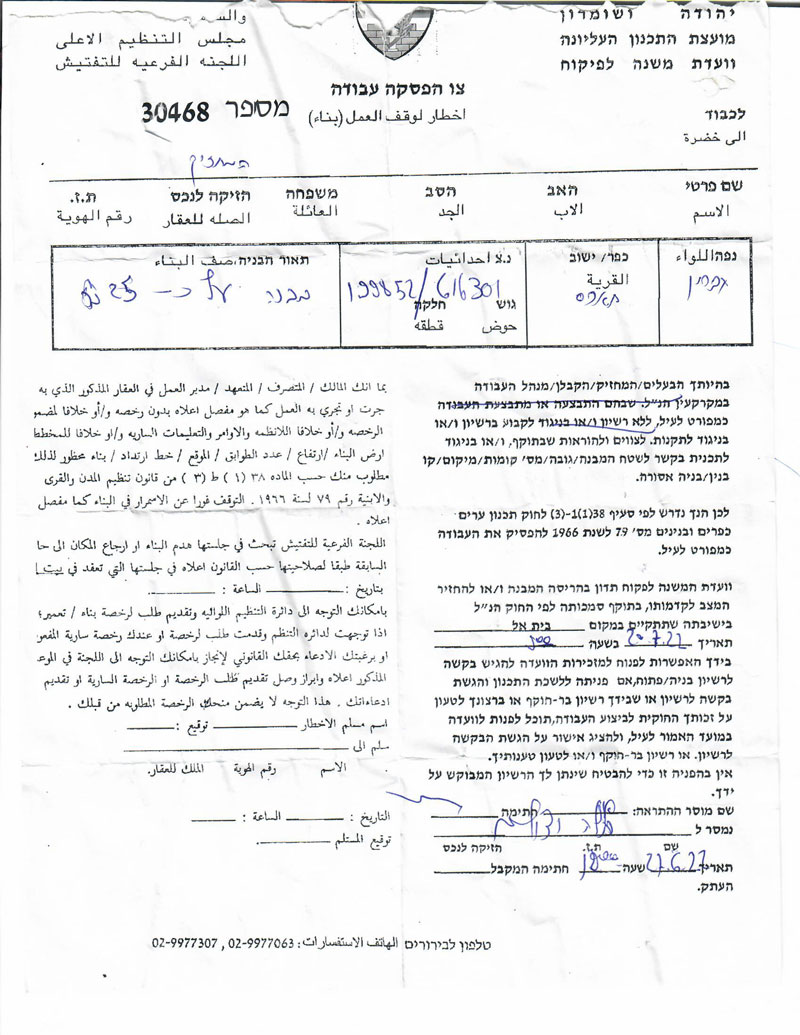 יהודה ושומרון
מועצת התכנון העליונה
וועדת משנה לפיקוח
מجلس التنظيم الاعلى
اللجنه الفرعيه للتفتيش
צו הפסקה עבודה
اخطار لوقف العمل (بناء)
מספר 30468
לכבוד
الى حضرة
המחזיק
שם פרטי האב הסב משפחה הזיקה לנכס ת.ז.
الاسم الاب الجد العائلة الصله للعقار رقم الهوية
נפה اللواء כפר/ ישוב נ.צ احداثيات תאור הבניה, صف البناء
القرية
199852/616301
מבנה על כ- 25
גוש חלקה
حوض قطقه
בהיותך הבעלים/המחזיק/הקבלן/מנהל העבודה
במקרקעין הנ"ל. שבהם התבצעה או מתבצעת העבודה
כמפורט לעיל, ללא רשיון ו/או בניגוד לקבוע ברשיון ו/או
בניגוד לתקנות. לצווים ולהוראות שבתוקף, ו/או בניגוד
לתכנית בקשר לשטח המבנה/גובה/מס' קומות/מיקום/קו
בנין/בניה אסורה.
לכן הנך נדרש לפי סעיף 38(1)-(3) לחוק תכנון ערים
כפרים ובנינים מס' 79 לשנת 1966 להפסיק את העבודה
כמפורט לעיל.
וועדת המשנה לפקוח תדון בהריסה המבנה ו/או להחזיר
המצב לקדמותו, בתוקף סמכותה לפי החוק הנ"ל
בישיבתה שתתקיים במקום בית אל
תאריך 20.7.22 בשעה
בידך האפשרות לפנות למזכירות הוועדה להגיש בקשה
לרשיון בניה/פתוח, אם פניתה ללשכת התכנון והגשת
בקשה לרשיון או שבידך רשיון בר-תוקף או ברצונך לטעון
על זכותך החוקית לביצוע העבודה, תוכל לפנות לוועדה
במועד האמור לעיל, ולהציג אישור על הגשת הבקשה
לרשיון. או רשיון בר-תוקף ו/או לטעון טענותיך.
אין בהפניה זו כדי להבטיח שינתן לך הרשיון המבוקש על
ידך.
שם מוסר ההתראה: חתימה
נמסר ל
שם ת.ז. הזיקה לנכס
תאריך 27.6.22 שעה חתימה המקבל
העתק.
بما انك المالك / المتصرف / المتعهد / مدير العمل في العقار المذكور الذي به
جرت او تجري به العمل كما هو مفصل اعلاه بدون رخصه و/أو خلافا لمضمو
الرخصه و/أو خلافا للانظمه والاوامر والتعليمات الساريه و/او خلافا للمخطط
ارض البناء / ارتفاع / عدد الطوابق / الموقع / خط ارتداد / بناء محظور لذلك
مطلوب منك حسب الماده ٣٨ (١) ط (٣) من قانون تنظيم المدن والقرى
والابنية رقم ٧٩ لسنة ١٩٦٦. التوقف فورا عن الاسمرار في البناء كما مفصل
اعلاه.
اللجنة الفرعية للتفتيش تبحث في جلستها هدم البناء او ارجاع المكان الى حا
السابقة طبقا لصلاحيتها حسب القانون اعلاه في جلستها التي تعقد في بيت ا
بتاريخ: الساعة:
بامكانك التوجه الى دائرة التنظيم اللوائيه وتقديم طلب لرخصة بناء / تعمير؛
اذا توجهت لدائره التنظم وقدمت طلب لرخصة او عندك رخصة سارية المفعو
او برغبتك الادعاء بحقك القانوني لإنجاز بامكانك التوجه الى اللجنة في الموعد
المذكور اعلاه وابراز وصل تقديم طلب الرخصة او الرخصة السارية او تقديم
ادعاءاتك. هذا التوجه لا يضمن منحك الرخصة المطلوبه من قبلك.
اسم مسلم الاخطار توقيع:
سلم الى
الاسم رقم الهوية الملك للعقار.
التاريخ: الساعة:
توقيع المستلم
טלפון לבירורים الهاتف الاستفسارات: 02-9977063, 02-9977307